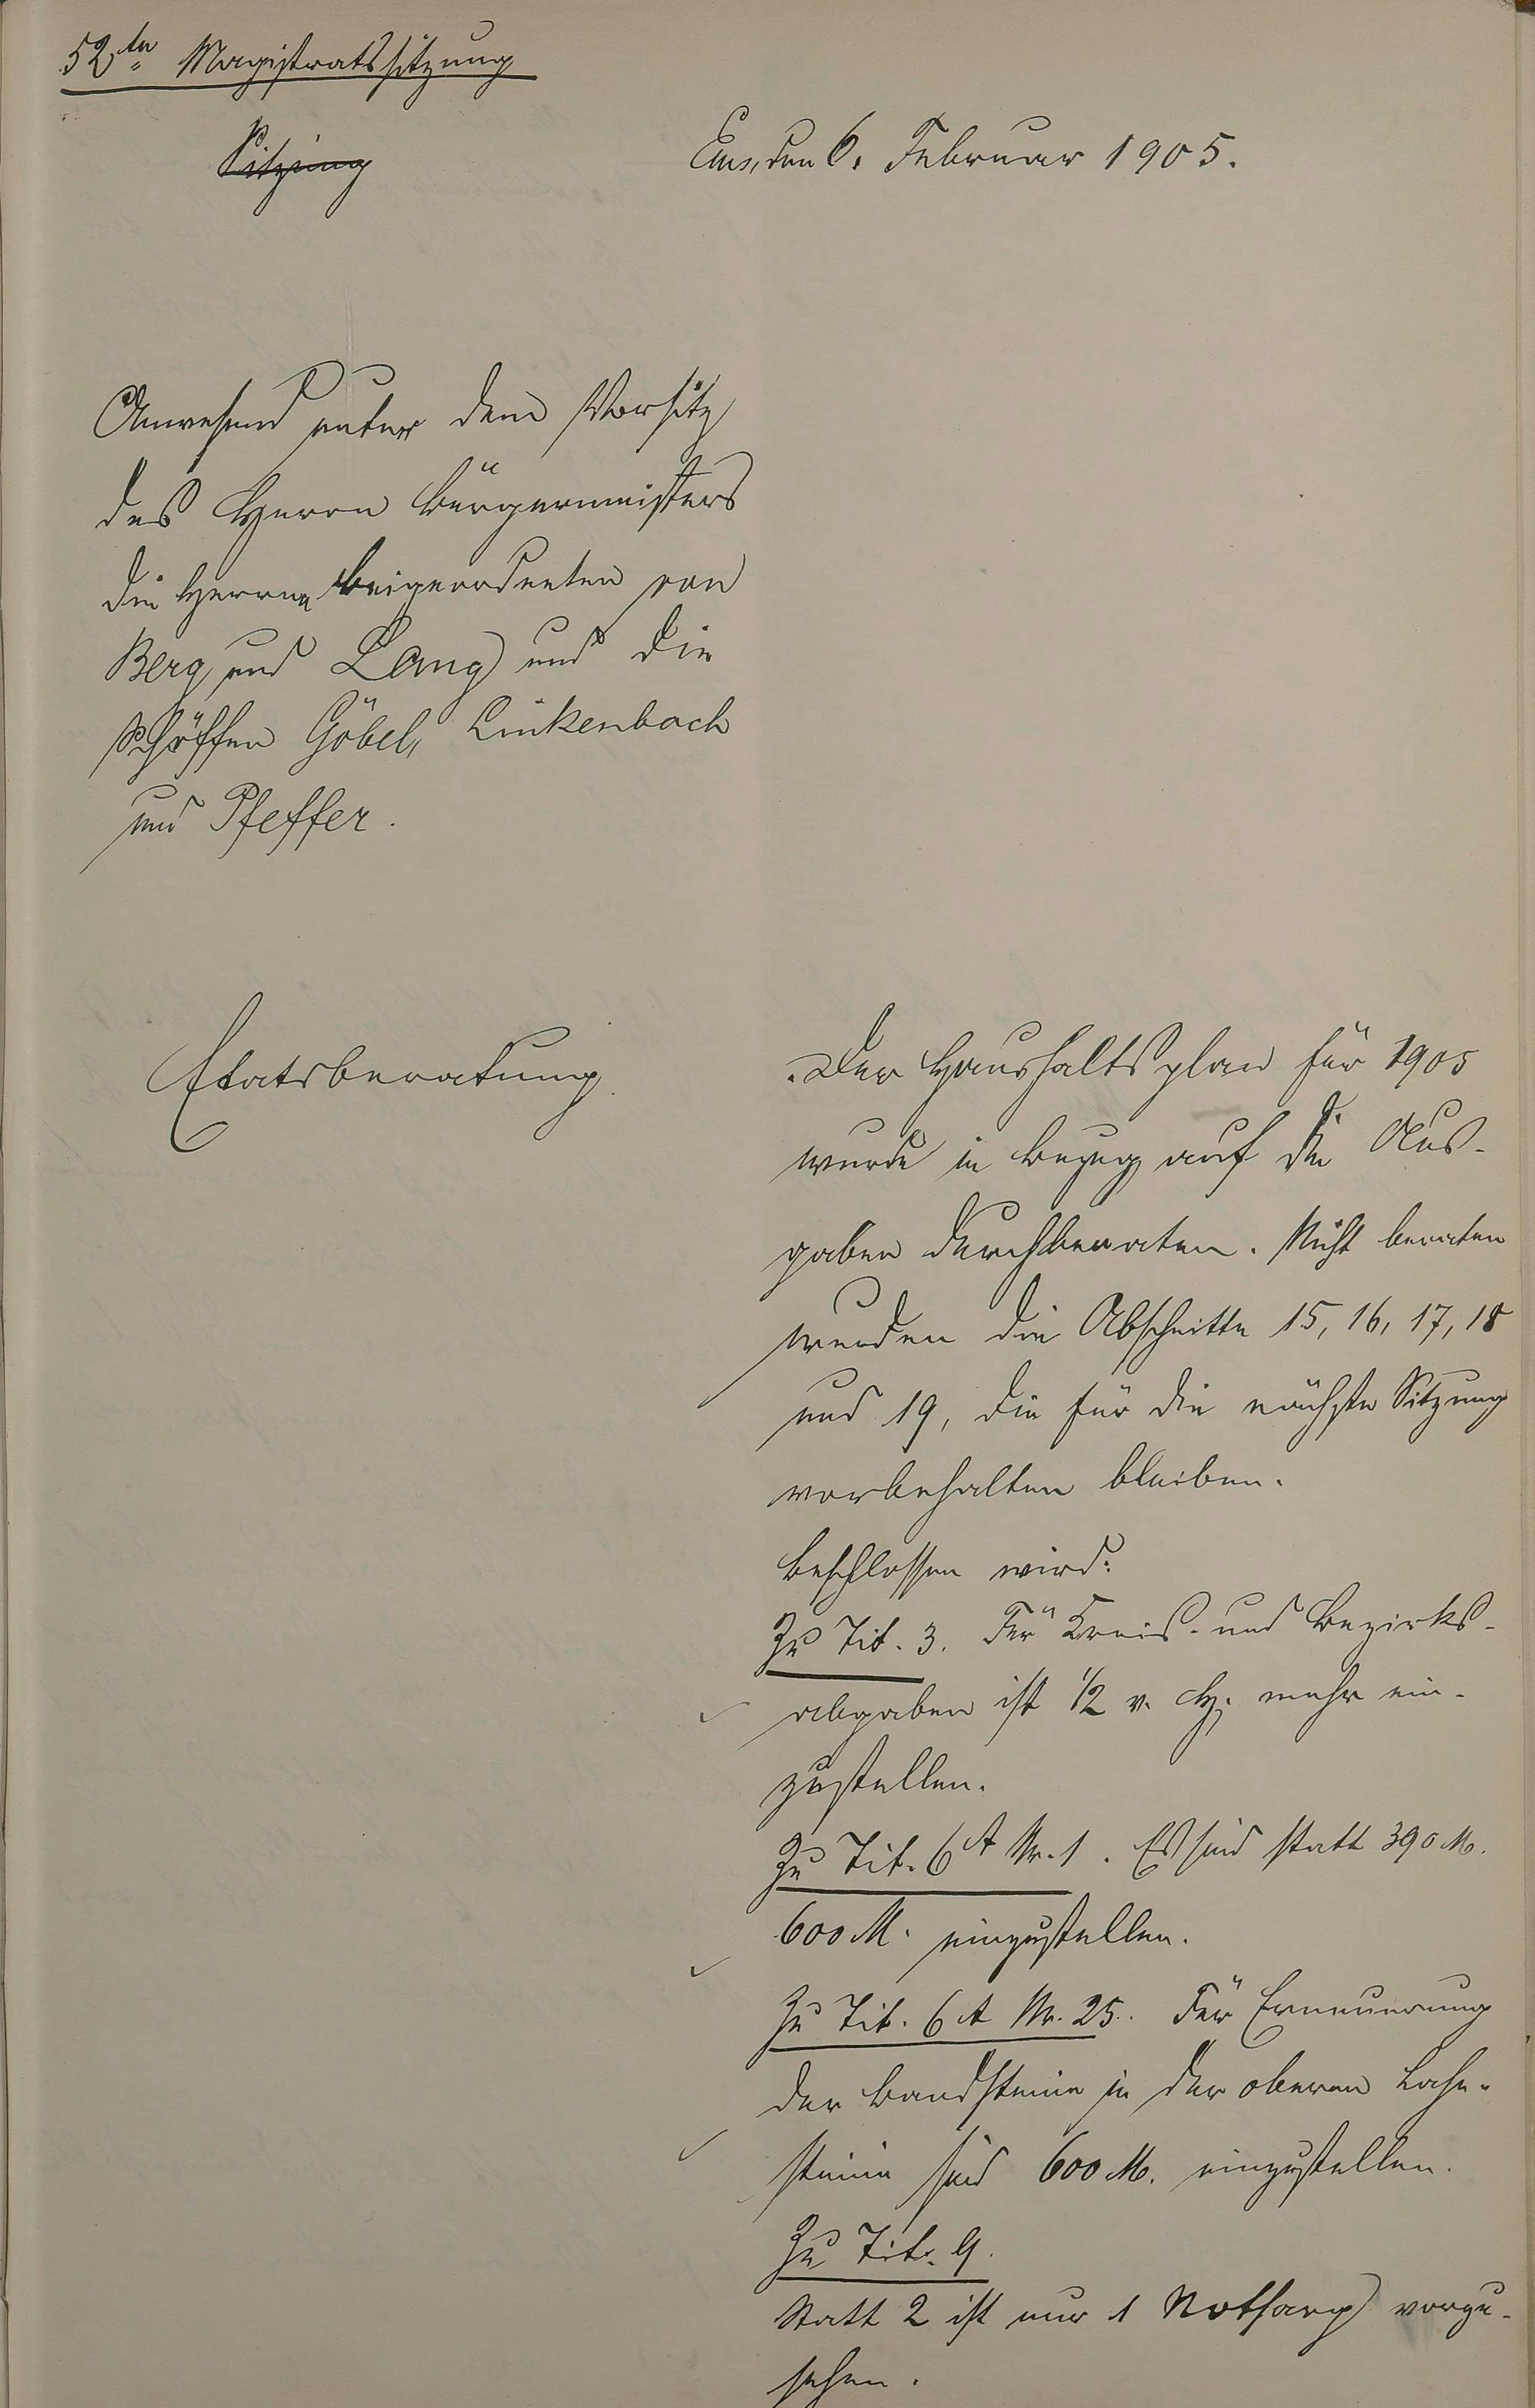 52te Magistratssitzung
Sitzung
Ems, den 6. Februar 1905.
Anwesend unter dem Vorsitz
des Herrn Bürgermeisters
die Herren Beigeordneten von
Berg und Lang und die
Schöffen Göbel, Linkenbach
und Pfeffer.
Etatsberatung.
Der Haushaltsplan für 1905
wurde in Bezug auf die Aus-
gaben durchberaten. Nicht beraten
wurden die Abschnitte 15, 16, 17, 18
und 19, die für die nächste Sitzung
vorbehalten bleiben.
Beschlossen wird:
Zu Tit. 3. Für Kreis- und Bezirks-
abgaben ist 1/2 v. H. mehr ein-
zustellen.
Zu Tit. 6 A Nr. 1. Es sind statt 390 M.
600 M. einzustellen.
Zu Tit. 6 A Nr. 25. Für Erneuerung
der Bandsteine in der oberen
sind 600 M. einzustellen.
Zu Tit. 9.
Statt 2 ist nur 1 Notsarg vorzu-
sehen.